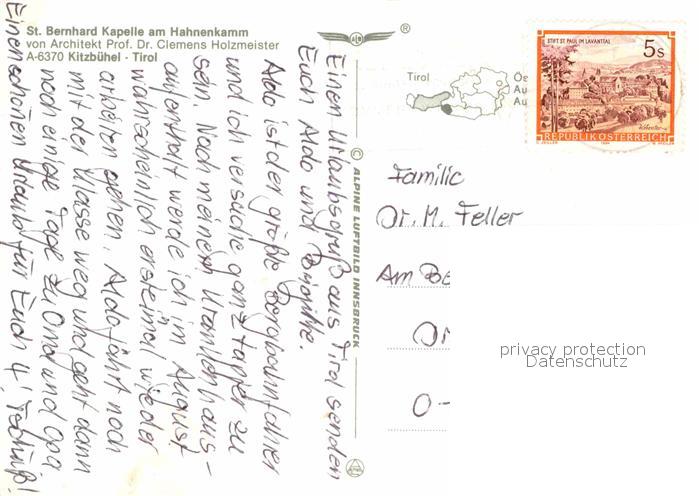 St. Bernhard Kapelle am Hahnenkamm
von Architekt Prof. Dr. Clemens Holzmeister
A-6370 Kitzbühel - Tirol
Einen Urlaubsgruß aus Tirol senden
Euch Aldo und Brigitte.
Aldo ist der größte Bergbahnfahrer
und ich versuche ganz tapfer zu
sein. Nach meinem Krankenhaus-
aufenthalt werde ich im August
wahrscheinlich ersteimal wieder
arbeiten gehen. Aldo fährt noch
mit der Klasse weg und geht dann
noch einige Tage zu Oma und Opa
Einen schönen Urlaub für Euch 4! Tschüß!
®
© ALPINE LUFTBILD INNSBRUCK
Tirol
Ös
Au
Au
STIFT ST. PAUL IM LAVANTTAL
5s
REPUBLIK ÖSTERREICH
Familie
Dr. M. Feller
Am Be
Or
O-
privacy protection
Datenschutz